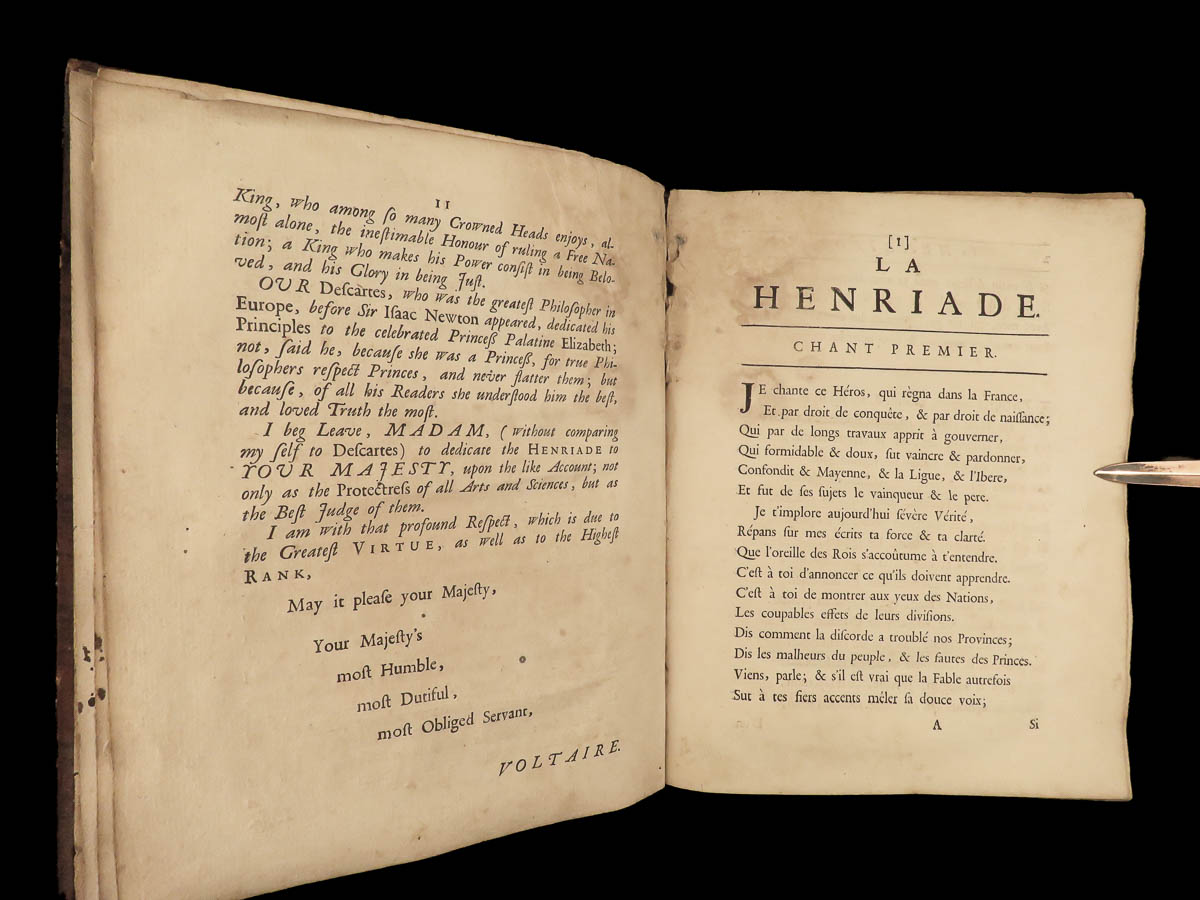 II
King, who among ſo many Crowned Heads enjoys, al-
moſt alone, the ineſtimable Honour of ruling a Free Na-
tion; a King who makes his Power conſiſt in being Belo-
ved, and his Glory in being Juſt.
OUR Deſcartes, who was the greateſt Philoſopher in
Europe, before Sir Iſaac Newton appeared, dedicated his
Principles to the celebrated Princeſs Palatine Elizabeth;
not, ſaid he, becauſe ſhe was a Princeſs, for true Phi-
loſophers reſpect Princes, and never flatter them; but
becauſe, of all his Readers ſhe underſtood him the beſt,
and loved Truth the moſt.
I beg Leave, MADAM, (without comparing
my ſelf to Deſcartes) to dedicate the HENRIADE to
YOUR MAJESTY, upon the like Account; not
only as the Protectreſs of all Arts and Sciences, but as
the Beſt Judge of them.
I am with that profound Reſpect, which is due to
the Greateſt VIRTUE, as well as to the Higheſt
RANK,
May it pleaſe your Majeſty,
Your Majeſty's
moſt Humble,
moſt Dutiful,
moſt Obliged Servant,
VOLTAIRE.
[1]
LA
HENRIADE.
CHANT PREMIER.
JE chante ce Héros, qui règna dans la France,
Et par droit de conquête, & par droit de naiſſance;
Qui par de longs travaux apprit à gouverner,
Qui formidable & doux, ſut vaincre & pardonner,
Confondit & Mayenne, & la Ligue, & l'Ibere,
Et fut de ſes ſujets le vainqueur & le pere.
Je t'implore aujourd'hui ſévère Vérité,
Répans ſur mes écrits ta force & ta clarté.
Que l'oreille des Rois s'accoûtume à t'entendre.
C'eſt à toi d'annoncer ce qu'ils doivent apprendre.
C'eſt à toi de montrer aux yeux des Nations,
Les coupables effets de leurs diviſions.
Dis comment la diſcorde a troublé nos Provinces;
Dis les malheurs du peuple, & les fautes des Princes.
Viens, parle; & s'il eſt vrai que la Fable autrefois
Sut à tes fiers accents mêler ſa douce voix;
A Si